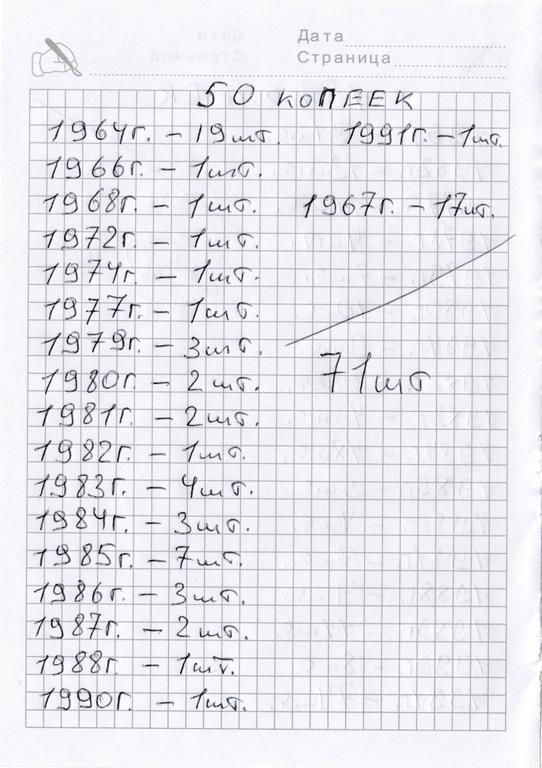 Дата
Страница
50 КОПЕЕК
1964г. - 19шт. 1991г. - 1шт.
1966г. - 1шт.
1968г. - 1шт. 1967г. - 17шт.
1972г. - 1шт.
1974г. - 1шт.
1977г. - 1шт.
1979г. - 3шт.
1980г. - 2шт.
71шт
1981г. - 2шт.
1982г. - 1шт.
1983г. - 4шт.
1984г. - 3шт.
1985г. - 7шт.
1986г. - 3шт.
1987г. - 2шт.
1988г. - 1шт.
1990г. - 1шт.